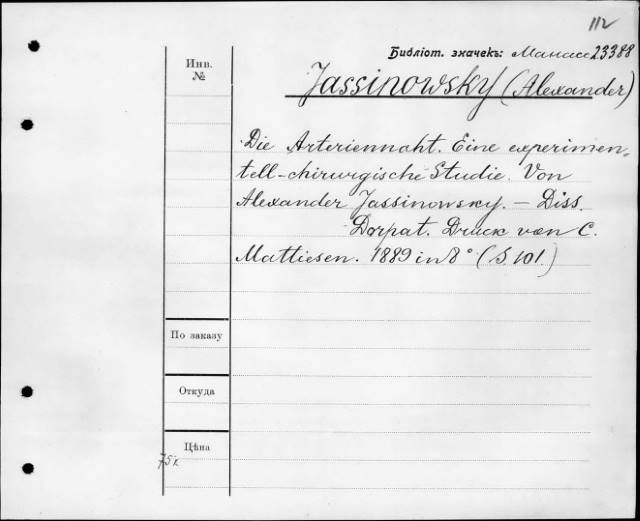 112
Библіот. значекъ: Манасс 23388
Инв.
№
Jassinowsky (Alexander)
Die Arteriennaht. Eine experimen-
tell-chirurgische Studie. Von
Alexander Jassinowsky. — Diss.
Dorpat. Druck von C.
Mattiesen. 1889 in 8° (S. 101.)
По заказу
Откуда
Цѣна
75 к.